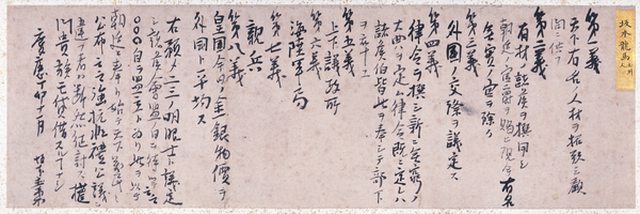 坂本龍馬
第一義
天下有名ノ人材を招致シ顧
問ニ供フ
第二義
有材ノ諸侯ヲ撰用シ
朝廷ノ官爵ヲ賜ヒ現今有名
無実ノ官ヲ除ク
第三義
外国ノ交際ヲ議定ス
第四義
律令ヲ撰シ新ニ無窮ノ
大典ヲ定ム律令既ニ定レハ
諸侯伯皆此ヲ奉シテ部下
ヲ率ユ
第五義
上下議政所
第六義
海陸軍局
第七義
親兵
第八義
皇国今日ノ金銀物価ヲ
外国ト平均ス
右預メ二三ノ明眼士ト議定
シ諸侯会盟ノ日ヲ待ツテ云云
○○○自ラ盟主ト為リ此ヲ以テ
朝廷ニ奉リ始テ天下万民ニ
公布云云強抗非礼公議ニ
違フ者ハ断然征討ス権
門貴族モ貸借スルコトナシ
慶應丁卯十一月 坂本直柔